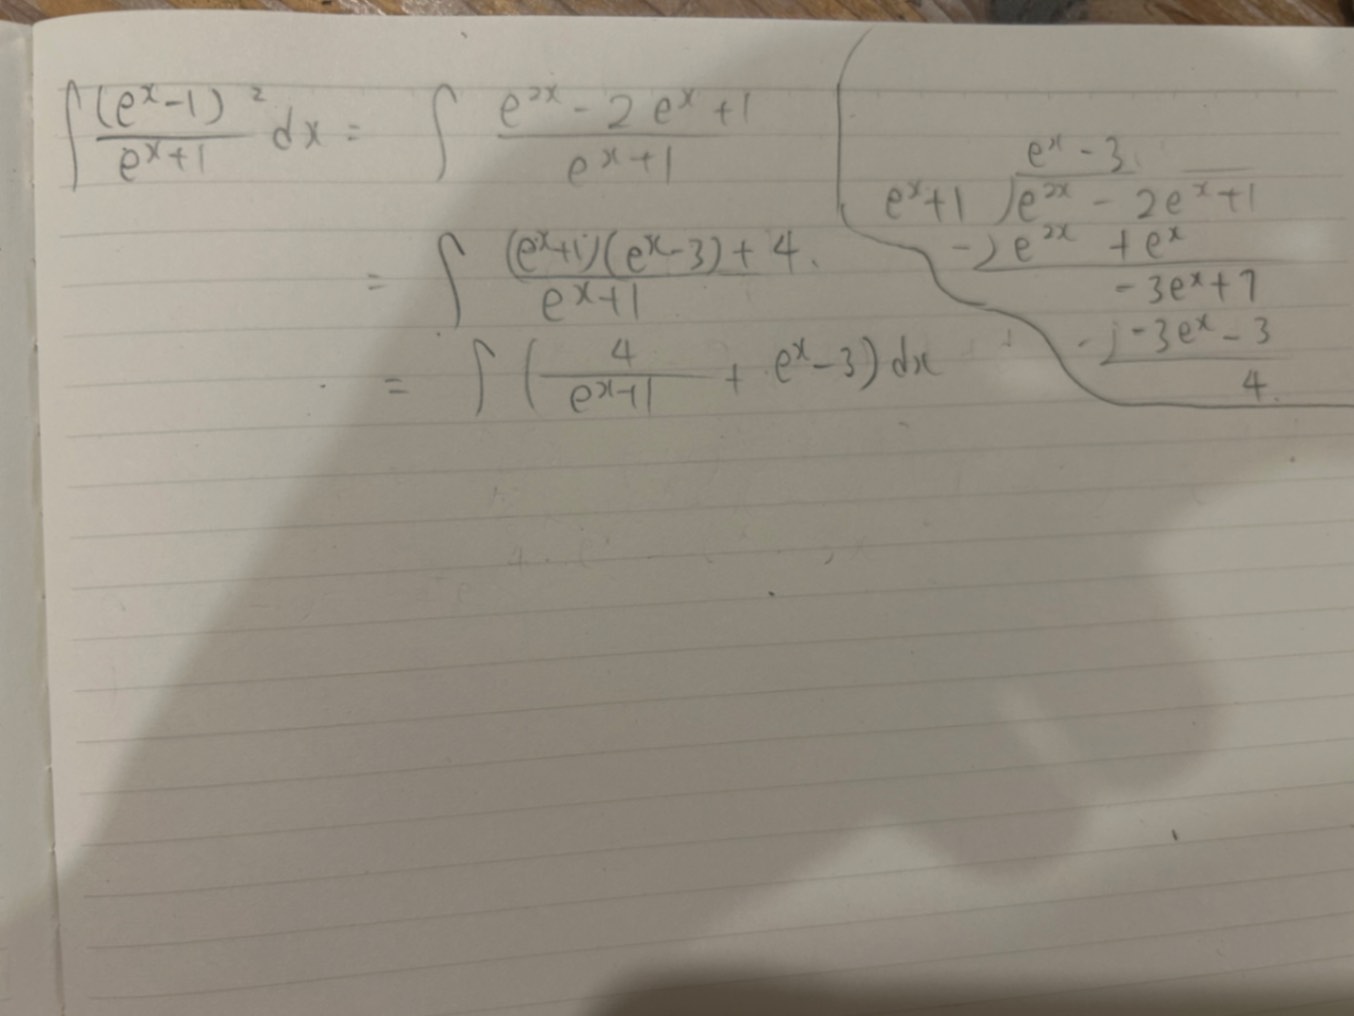 ∫ (eˣ-1)² / (eˣ+1) dx = ∫ (e²ˣ - 2eˣ + 1) / (eˣ+1)
= ∫ ((eˣ+1)(eˣ-3) + 4) / (eˣ+1)
= ∫ (4 / (eˣ+1) + eˣ - 3) dx
eˣ - 3
eˣ+1 ) e²ˣ - 2eˣ + 1
-) e²ˣ + eˣ
-3eˣ + 1
-) -3eˣ - 3
4